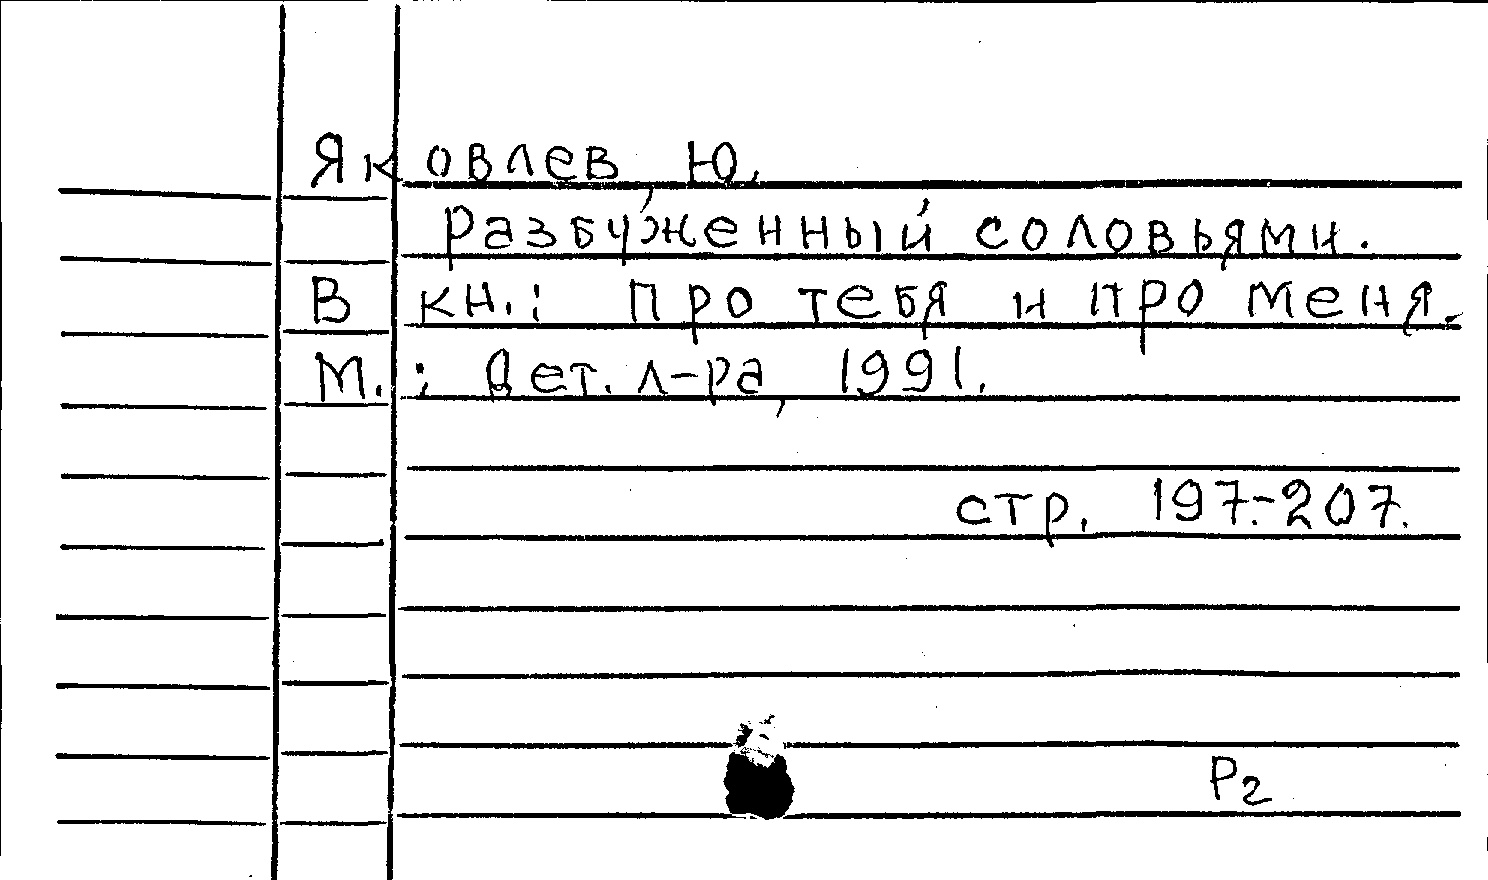 Яковлев, Ю.
разбуженный соловьями.
В кн.: Про тебя и про меня.
М.: Дет. л-ра, 1991.
стр. 197.-207.
Р2